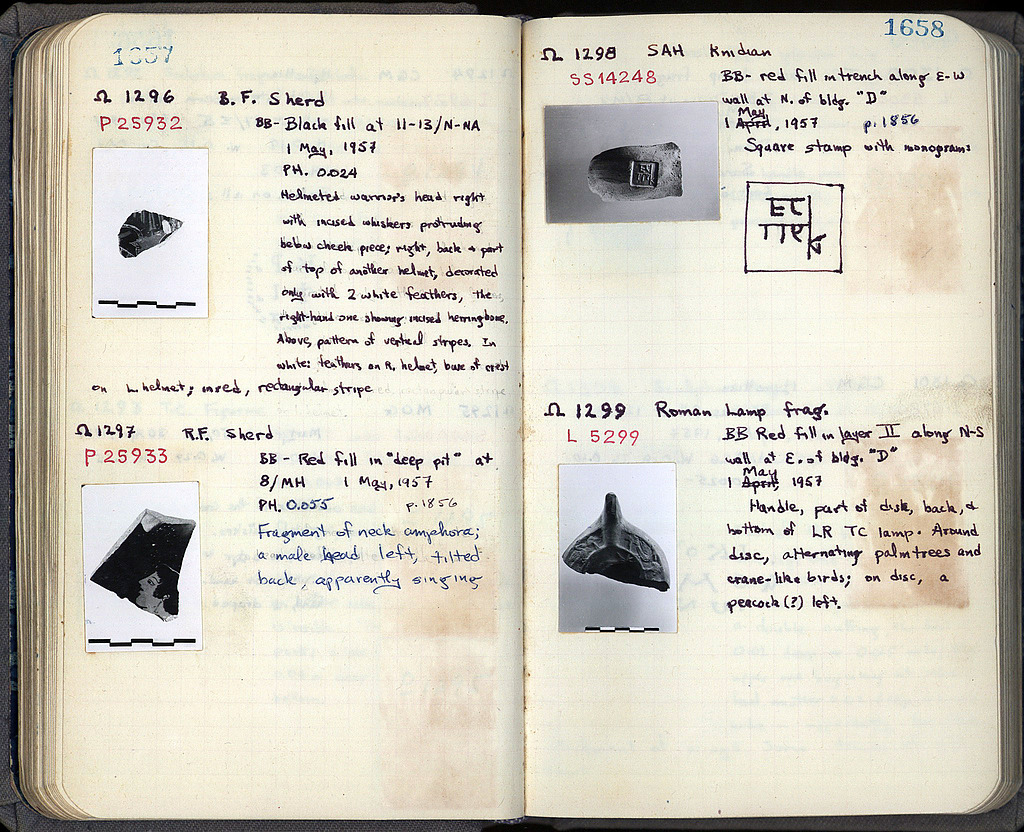 1657
Ω 1296 B.F. Sherd
P 25932
BB- Black fill at 11-13/N-NA
1 May, 1957
PH. 0.024
Helmeted warrior's head right
with incised whiskers protruding
below cheek piece; right, back & part
of top of another helmet, decorated
only with 2 white feathers, the
right-hand one showing incised herringbone.
Above, pattern of vertical stripes. In
white: feathers on R, helmet, base of crest
on L helmet; in red, rectangular stripe
Ω 1297 R.F. Sherd
P 25933
BB - Red fill in "deep pit" at
8/MH 1 May, 1957
PH. 0.055 p.1856
Fragment of neck amphora;
a male head left, tilted
back, apparently singing
1658
Ω 1298 SAH Knidian
SS 14248
BB- red fill in trench along E-W
wall at N. of bldg. "D"
May
1 April, 1957 p.1856
Square stamp with monograms
Ω 1299 Roman Lamp frag.
L 5299
BB Red fill in layer II along N-S
wall at E. of bldg. "D"
May
1 April, 1957
Handle, part of disk, back, &
bottom of LR TC lamp. Around
disc, alternating palmtrees and
crane-like birds; on disc, a
peacock (?) left.